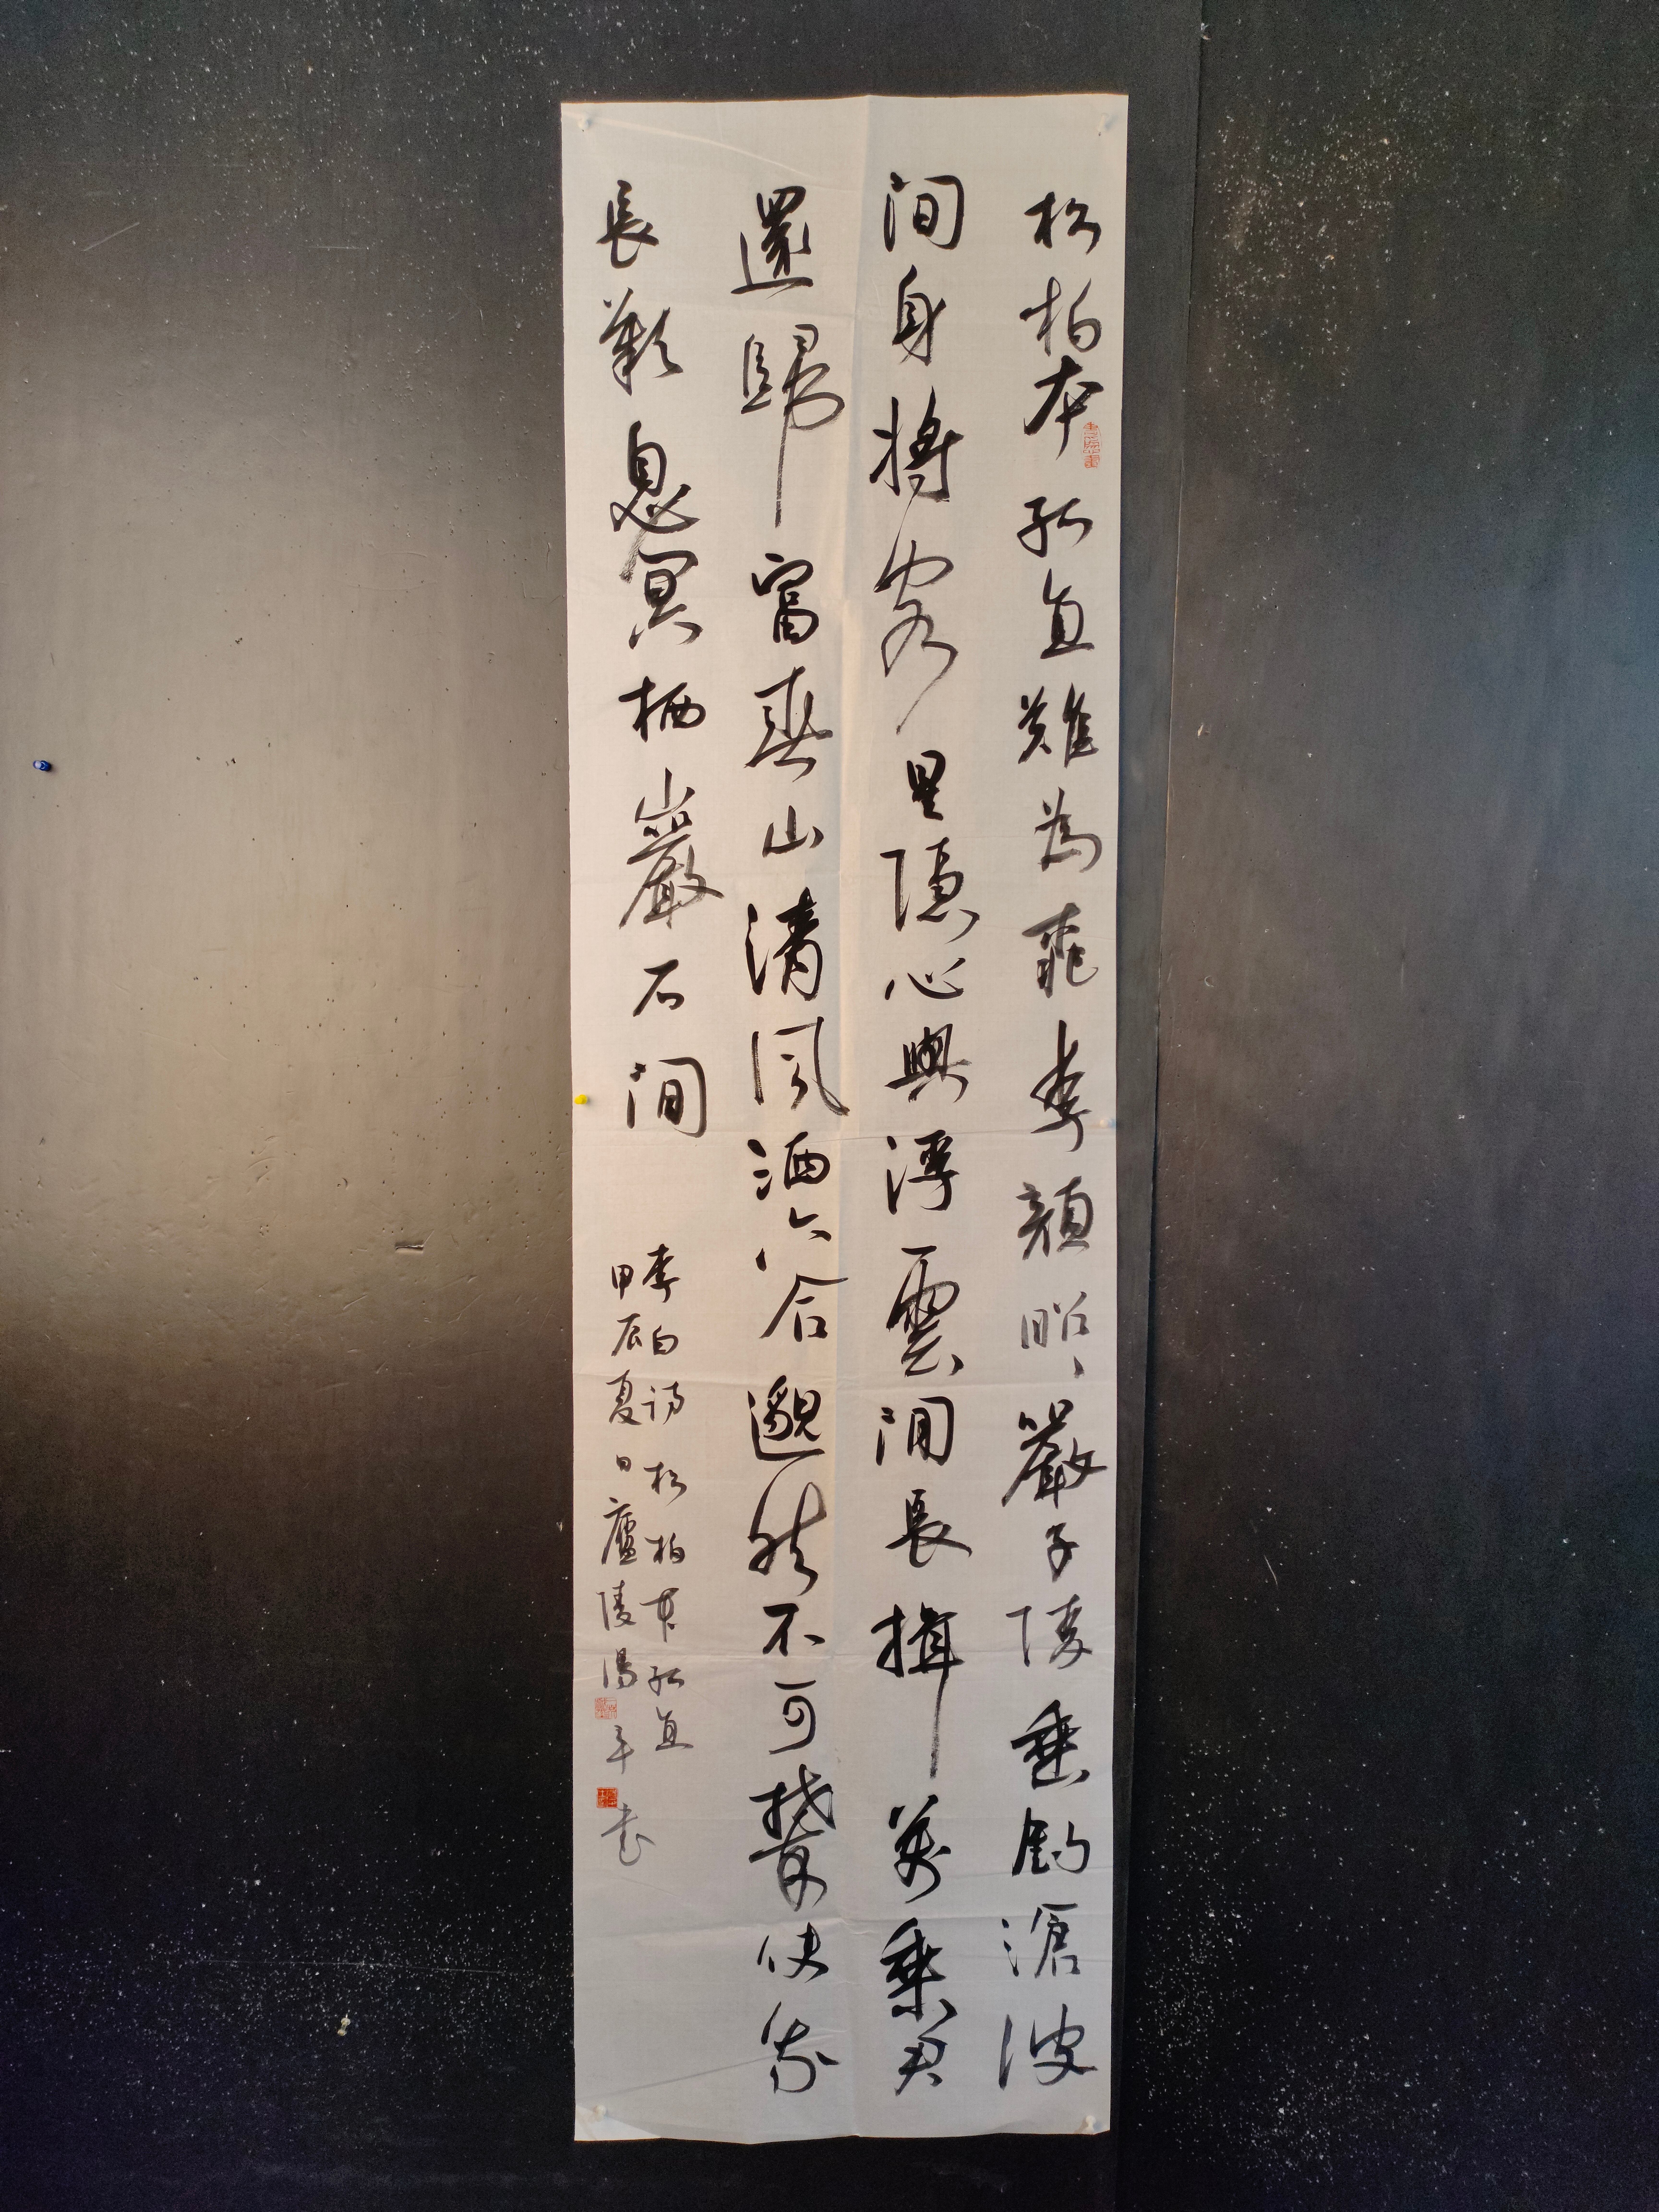 松柏本孤直難為桃李顏昭昭嚴子陵垂釣滄波
間身將客星隱心與浮雲閒長揖萬乘君
還歸富春山清風洒六合邈然不可攀使我
長歎息冥栖巖石間
李白詩松柏本孤直
甲辰夏日廬陵湯平書